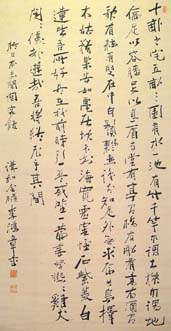 十畝之宅五畝之園有水一池有竹千竿勿謂土狹勿謂地
偏足以容膝足以息肩有堂有亭有橋有船有書有酒
有歌有弦有叟在中白鬚飄然識分知足外無求焉如鳥擇
木姑務巢安如黽居坎不知海寬靈鶴怪石紫菱白
蓮皆吾所好盡在我前時引一杯或吟一篇妻孥熙熙雞犬
閑閑優哉遊哉吾將終老乎其間
李鴻章書